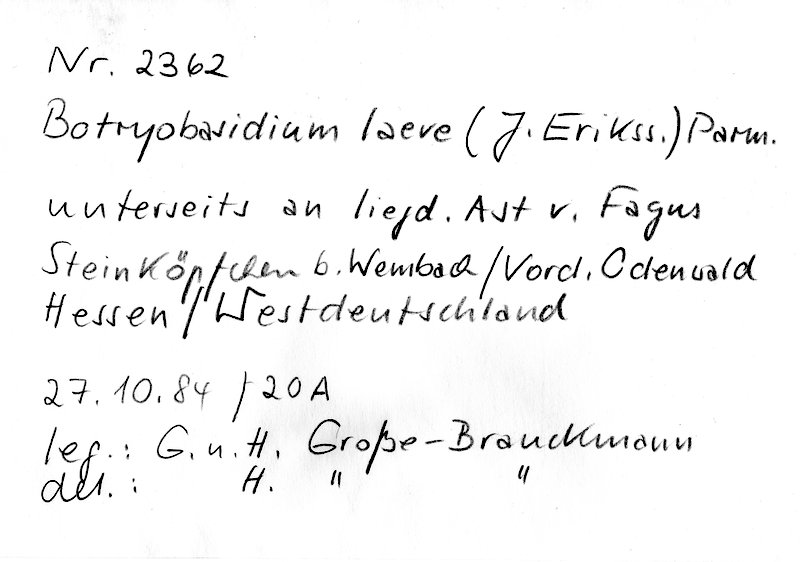 Nr. 2362
Botryobasidium laeve (J. Erikss.) Parm.
unterseits an liegd. Ast v. Fagus
Steinköpfchen b. Wembach/Vord. Odenwald
Hessen/Westdeutschland
27.10.84 / 20 A
leg.: G. u. H. Große-Brauckmann
det.: H. " "